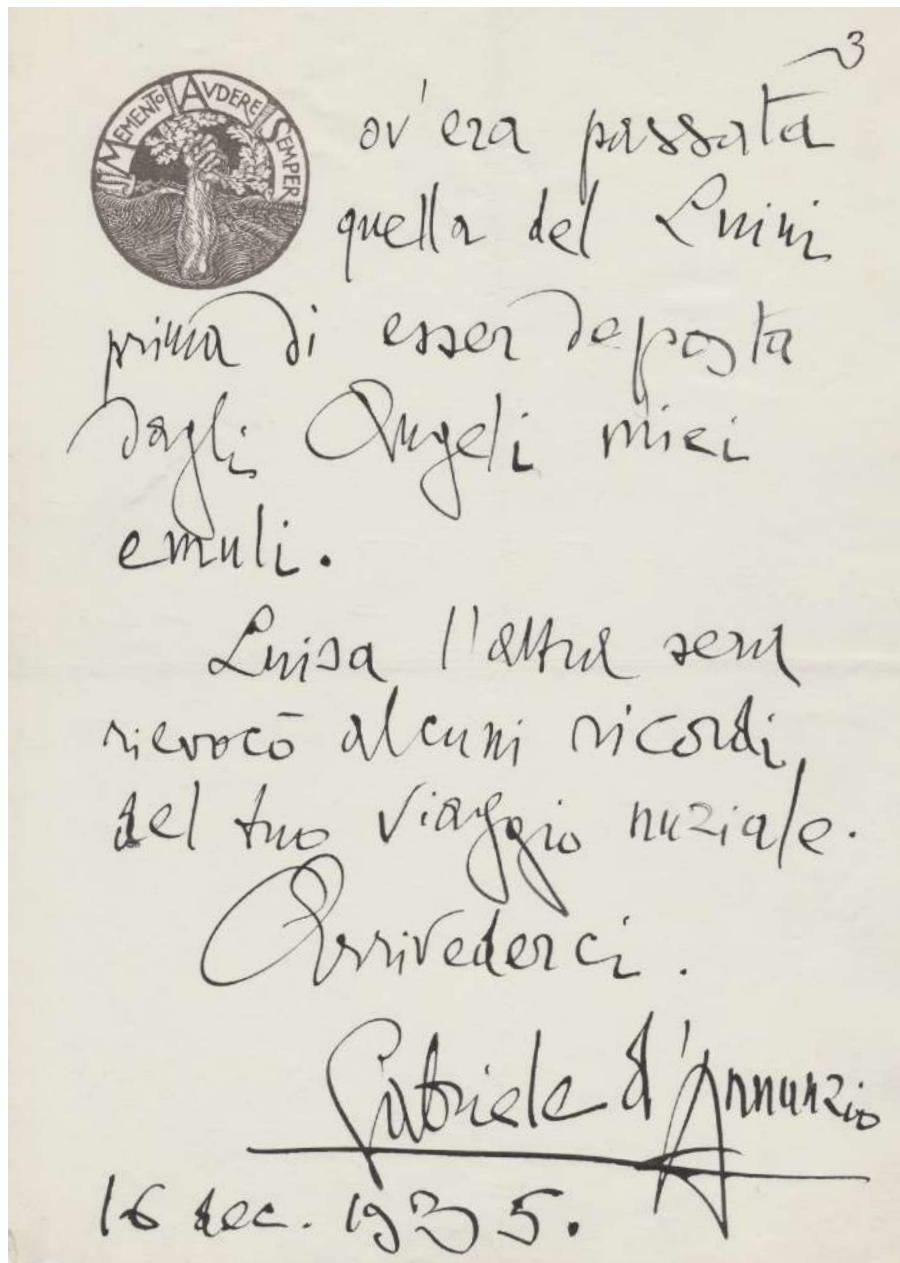 3
MEMENTO AVDERE SEMPER
ov'era passata
quella del Luini
prima di esser deposta
dagli Angeli miei
emuli.
Luisa l'altra sera
rievocò alcuni ricordi
del tuo viaggio nuziale.
Arrivederci.
Gabriele d'Annunzio
16 dec. 1935.